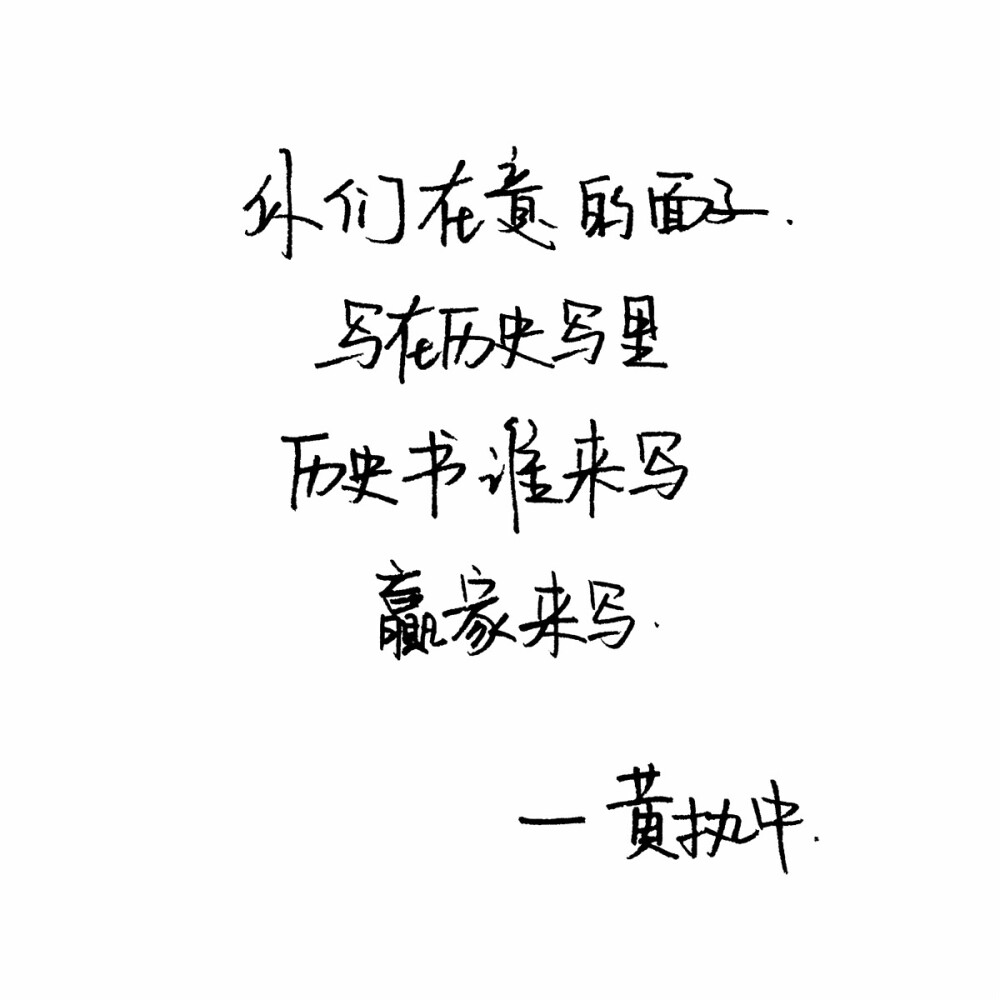 你们在意的面子.
写在历史写里
历史书谁来写
赢家来写.
— 黄执中.